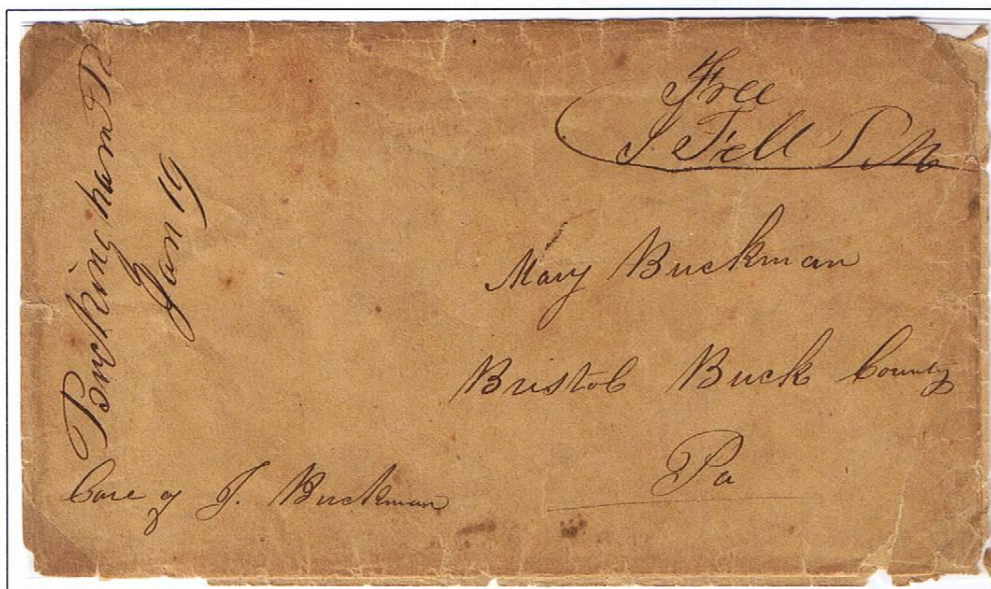 Buckingham Pa
Jan 19
Free
J Fell P M
Mary Buckman
Bristol Buck County
Pa
Care of J. Buckman